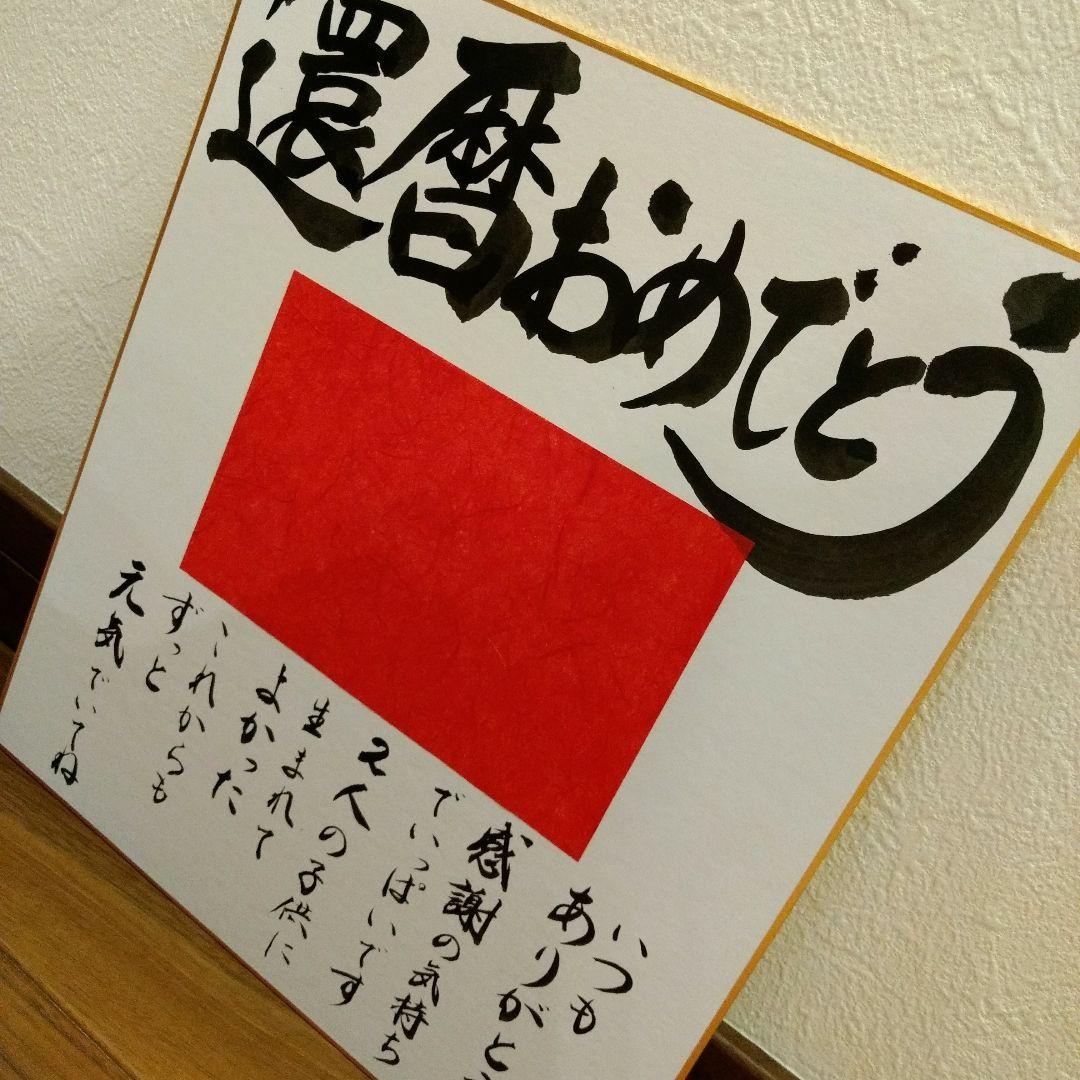 還暦おめでとう
いつも
ありがとう
感謝の気持ち
でいっぱいです
2人の子供に
生まれて
よかった
これからも
ずっと
元気でいてね